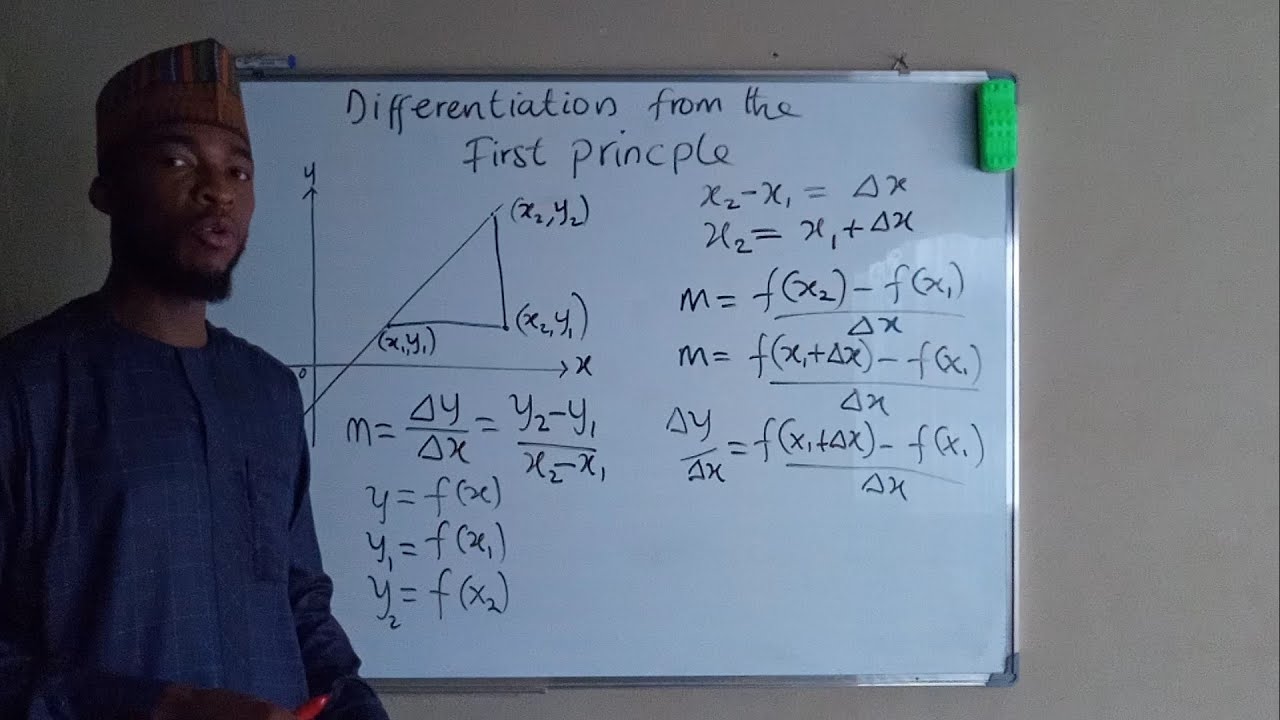 Differentiation from the
First princple
y
(x₂, y₂)
(x₂, y₁)
(x₁, y₁)
x
0
m = Δy/Δx = y₂ - y₁/x₂ - x₁
y = f(x)
y₁ = f(x₁)
y₂ = f(x₂)
x₂ - x₁ = Δx
x₂ = x₁ + Δx
m = f(x₂) - f(x₁)/Δx
m = f(x₁ + Δx) - f(x₁)/Δx
Δy/Δx = f(x₁ + Δx) - f(x₁)/Δx